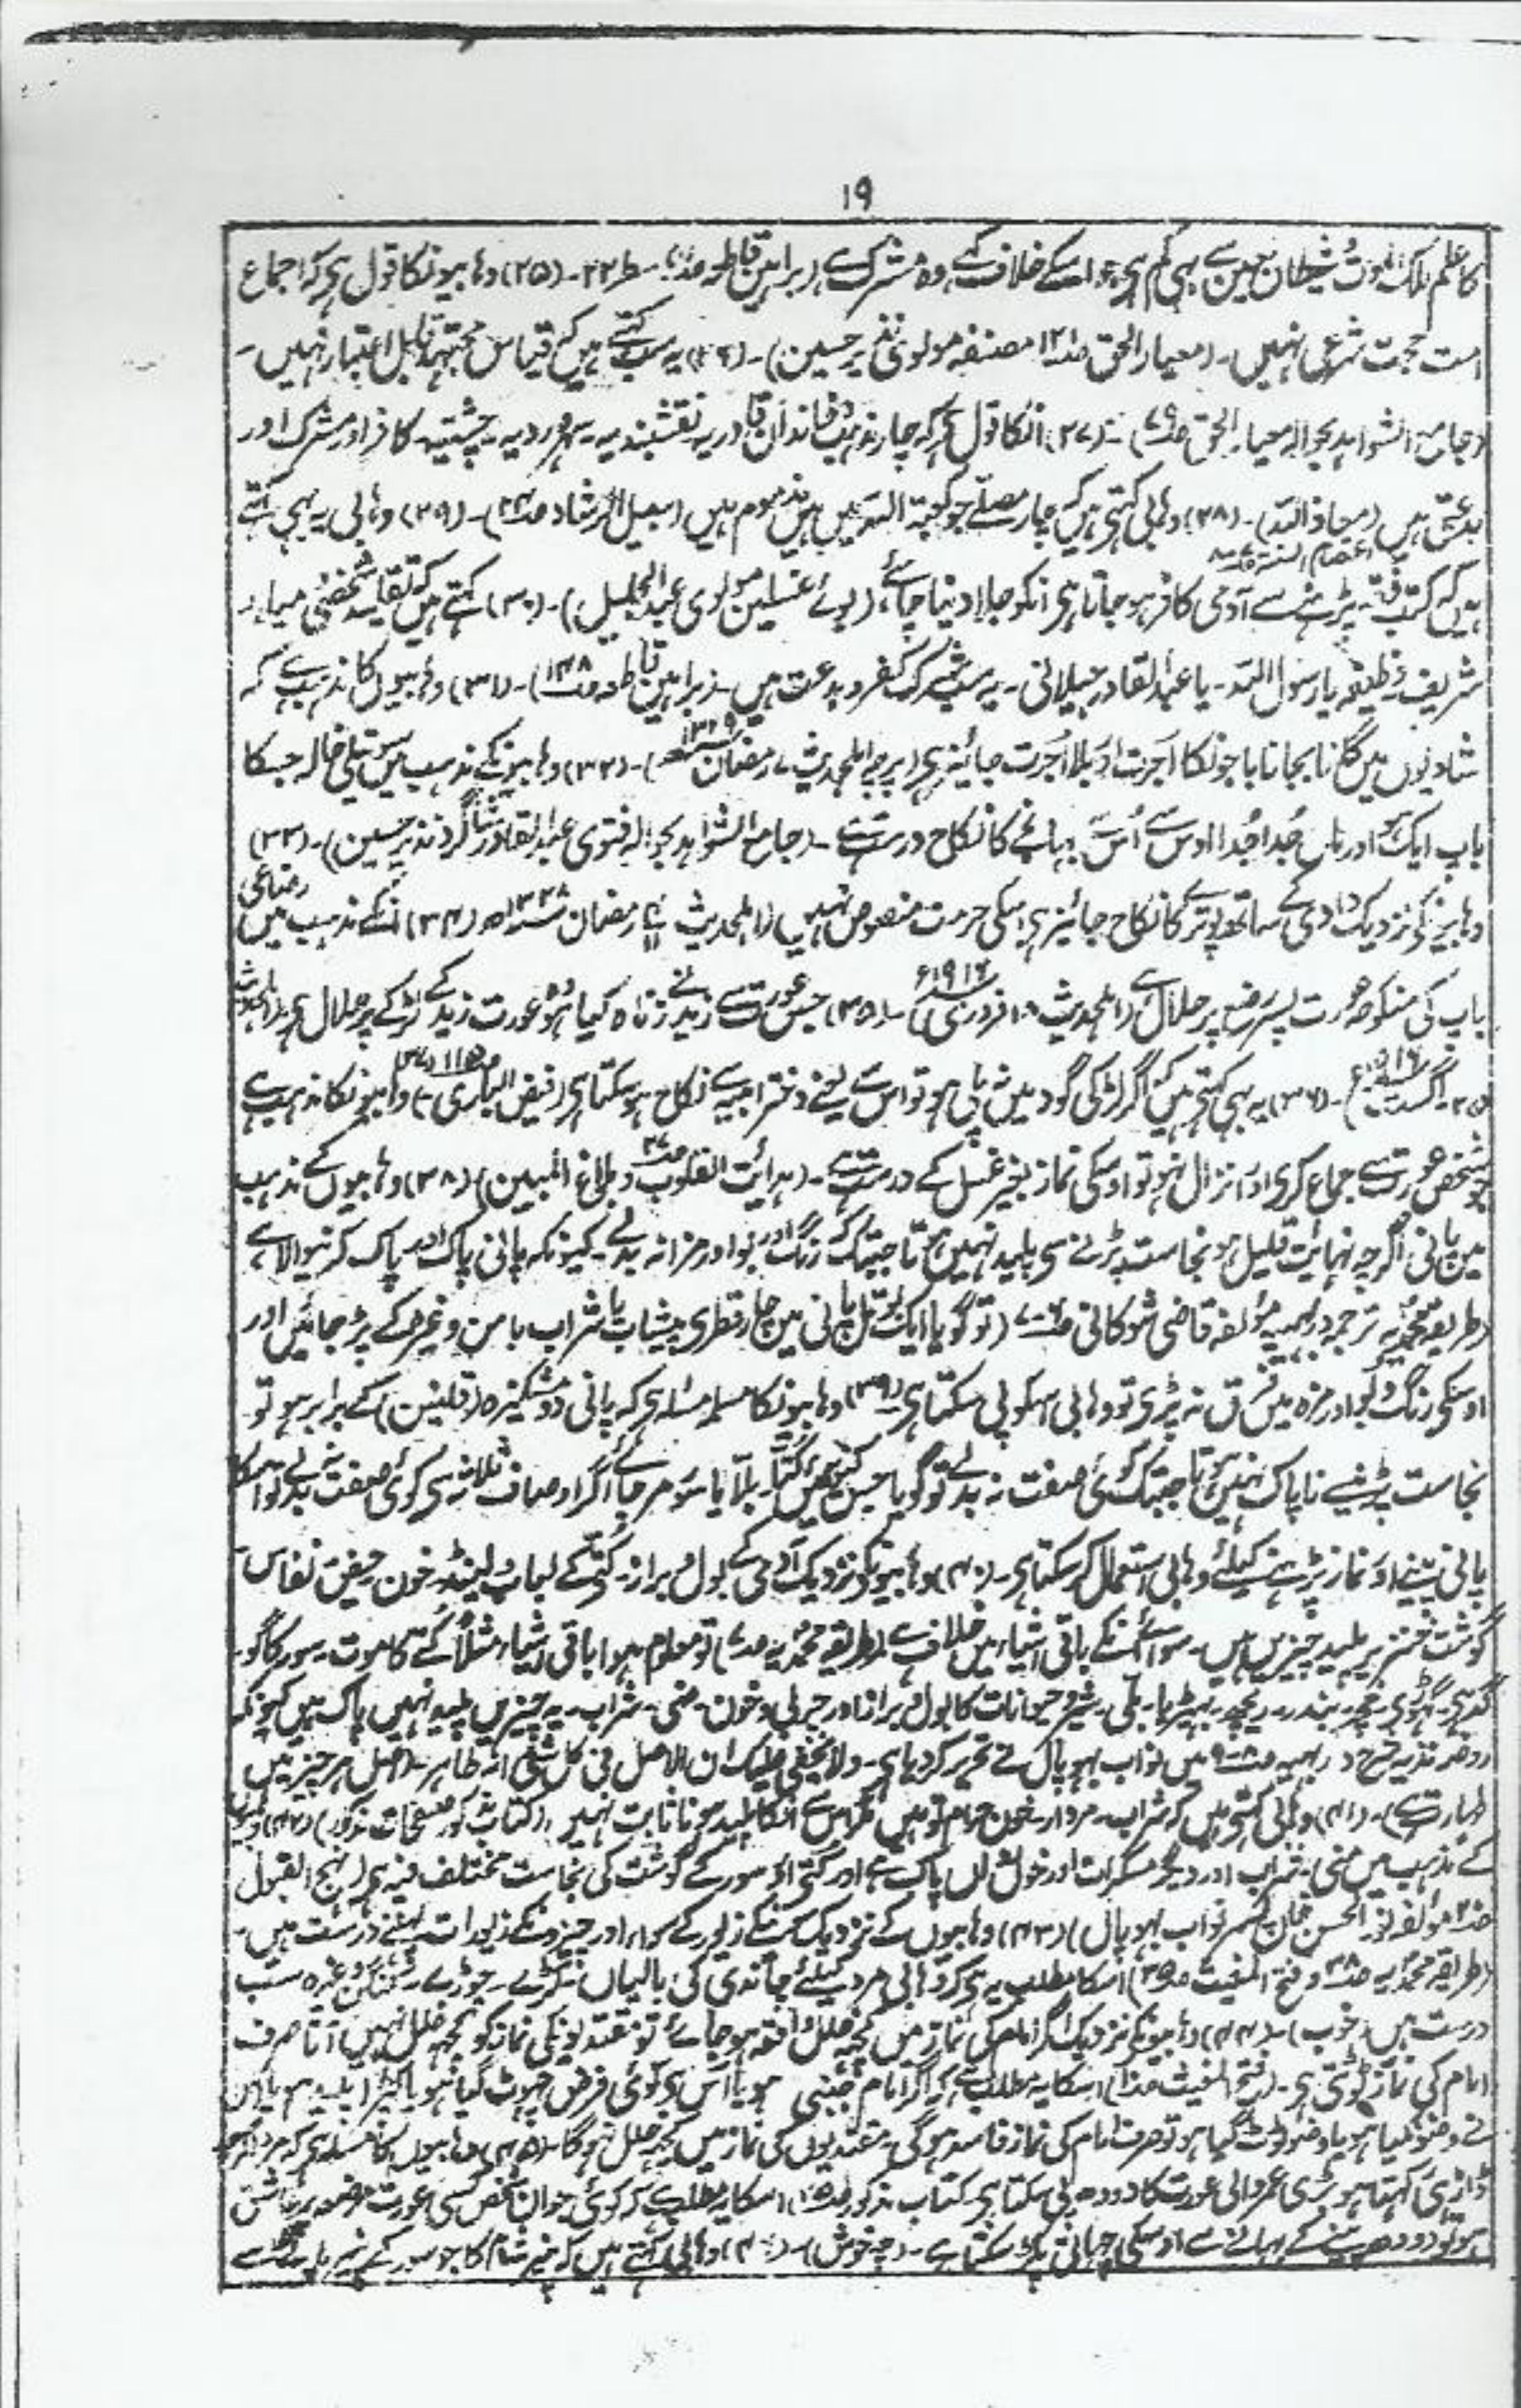 ۱۹
کا علم ملک الموت شیطان لعین سے بہی کم ہے جو اسکے خلاف کہے وہ مشرک ہے (براہین قاطعہ سطر ۲۲- (۲۵) وہابیونکا قول ہے کہ اجماع
امت حجت شرعی نہیں- (معیار الحق مصنفہ مولوی نذیر حسین)- (۲۶) یہ سب کہتے ہیں کہ قیاس مجتہد قابل اعتبار نہیں-
(جامع الشواہد بحوالہ معیار الحق)- (۲۷) انکا قول ہے کہ چار مذہب و خاندان قادریہ نقشبندیہ- سہروردیہ- چشتیہ- کافر اور مشرک اور
بدعتی ہیں (معاذ اللہ)- (۲۸) وہابی کہتے ہیں کہ چار مصلے جو کعبۃ اللہ میں ہیں مذموم ہیں (سبیل الرشاد)- (۲۹) وہابی یہ بہی کہتے
اعتصام السنہ
ہیں کہ کتب فقہ پڑہنے سے آدمی کافر ہو جاتا ہے انکو جلا دینا چاہئے (بوئے غسلین مولوی عبد الجلیل)- (۳۰) کہتے ہیں کہ تقلید شخصی میلاد
شریف وظیفہ یا رسول اللہ- یا عبد القادر جیلانی- یہ سب شرک کفر و بدعت ہیں- (براہین قاطعہ ۱۴۸)- (۳۱) وہابیوں کا مذہب ہے کہ
شادیوں میں گانا بجانا باجونکا اُجرت اور بلا اُجرت جائز ہے (پرچہ اہلحدیث ۷ رمضان ۱۳۲۹)- (۳۲) وہابیونکے مذہب میں سوتیلی خالہ جسکا
باپ ایک ہو اور ماں جُدا جُدا اوس سے اُس بہانجے کا نکاح درست ہے- (جامع الشواہد بحوالہ فتوی عبد القادر شاگرد نذیر حسین)- (۳۳)
وہابیونکے نزدیک دادی کے ساتھ پوتے کا نکاح جائز ہے اسکی حرمت منصوص نہیں (اہلحدیث رمضان ۱۳۲۸ھ (۳۴) انکے مذہب میں رضاعی
باپ کی منکوحہ عورت پسر رضیع پر حلال ہے (اہلحدیث ۱۰ فروری ۱۹۱۶ء)- (۳۵) جس عورت سے زید نے زناہ کیا ہو وہ عورت زید کے لڑکے پر حلال ہے (اہلحدیث
۲۵- اگست ۱۹۱۶ء)- (۳۶) یہ بہی کہتے ہیں کہ اگر لڑکی گود میں نہ پلی ہو تو اس سے یعنے دختر ربیبہ سے نکاح ہو سکتا ہے (فیض الباری) (۳۷) وہابیونکا مذہب ہے
جو شخص عورت سے جماع کرے اور انزال نہو تو اوسکی نماز بغیر غسل کے درست ہے- (ہدایت القلوب و بلاغ المبین) (۳۸) وہابیوں کے مذہب
میں پانی اگرچہ نہایت قلیل ہو نجاست پڑنے سے پلید نہیں ہوتا جبتک کہ رنگ اور بو اور مزا نہ بدلے- کیونکہ پانی پاک اور پاک کرنیوالا ہے
(طریقہ محمدیہ ترجمہ درر بہیہ مؤلفہ قاضی شوکانی) (تو گویا ایک بوتل پانی میں چار قطرے پیشاب یا شراب یا من وغیرہ کے پڑ جائیں اور
اوسکی رنگ و بو اور مزہ میں فرق نہ پڑے تو وہابی اسکو پی سکتا ہے (۳۹) وہابیونکا مسلمہ مسئلہ ہے کہ پانی دو مشکیزہ (قلتین) کے برابر ہو تو
نجاست پڑنے سے ناپاک نہیں ہوتا جبتک کوئی صفت نہ بدلے تو گویا جس کنوئیں میں کتا- بلا یا سؤر مر جائے اگر اوصاف ثلاثہ سے کوئی صفت نہ بدلے تو اسکا
پانی پینے اور نماز پڑہنے کیلئے وہابی استعمال کر سکتا ہے- (۴۰) وہابیونکے نزدیک آدمی کے بول و براز- کُتے کے لعاب لینڈ- خون حیض نفاس-
گوشت خنزیر پلید چیزیں ہیں- سوائے انکے باقی اشیاء میں خلاف ہے (طریقہ محمدیہ) تو معلوم ہوا باقی اشیاء مثلاً کُتے کا موت- سور کا گو-
گدہے- گہوڑے- خچر- بندر- ریچھ- بہیڑیا- بلی- شیر و حیوانات کا بول و براز اور چربی و خون- منی- شراب- یہ چیزیں پلید نہیں پاک ہیں کیونکہ
روضہ ندیہ شرح درر بہیہ ۸-۹ میں نواب بہوپال نے تحریر کر دیا ہے- ولا یخفی علیک ان الاصل فی کل شئی انہ طاہر- (اصل ہر چیز میں
طہارت ہے)- (۴۱) وہابی کہتے ہیں کہ شراب- مردار- خون حرام تو ہیں مگر اس سے انکا پلید ہونا ثابت نہیں (کتاب مذکور صفحات مذکور) (۴۲)
کے مذہب میں منی- شراب اور دیگر مسکرات اور خون پاک ہے اور کتے اور سور کے گوشت کی نجاست مختلف فیہ ہے (نہج القبول
مؤلفہ نور الحسن خان پسر نواب بہوپال) (۴۳) وہابیوں کے نزدیک سونے کے زیور کے سوا اور چیزونکے زیورات پہننے درست ہیں-
(طریقہ محمدیہ و فتح المغیث) اسکا مطلب یہ ہے کہ وہابی مرد کیلئے چاندی کی بالیاں- کڑے- چوڑے- کنگن وغیرہ سب
درست ہیں (خوب)- (۴۴) وہابیونکے نزدیک اگر امام کی نماز میں کچھ خلل واقعہ ہو جائے تو مقتدیونکی نماز کو کچھ خلل نہیں آتا صرف
امام کی نماز ٹوٹتی ہے- (فتح المغیث) اسکا یہ مطلب ہے کہ اگر امام جنبی ہو یا اس سے کوئی فرض چہوٹ گیا ہو یا کپڑا پلید ہو یا اس
نے وضو نکیا ہو یا وضو ٹوٹ گیا ہو تو صرف امام کی نماز فاسد ہوگی- مقتدیوں کی نماز میں کچھ خلل نہوگا- (۴۵) وہابیوں کا مسئلہ ہے کہ مرد اگرچہ
ڈاڑہی رکہتا ہو بڑی عمر والی عورت کا دودہ پی سکتا ہے- کتاب مذکور) اسکا یہ مطلب ہے کہ کوئی جوان شخص کسی عورت مرضعہ پر عاشق
ہو تو دودھ پینے کے بہانے سے اوسکی چہاتی پکڑ سکتا ہے- (چہ خوش)- (۴۶) وہابی کہتے ہیں کہ پنیر شام کا جو سور کے پنیر مایہ سے